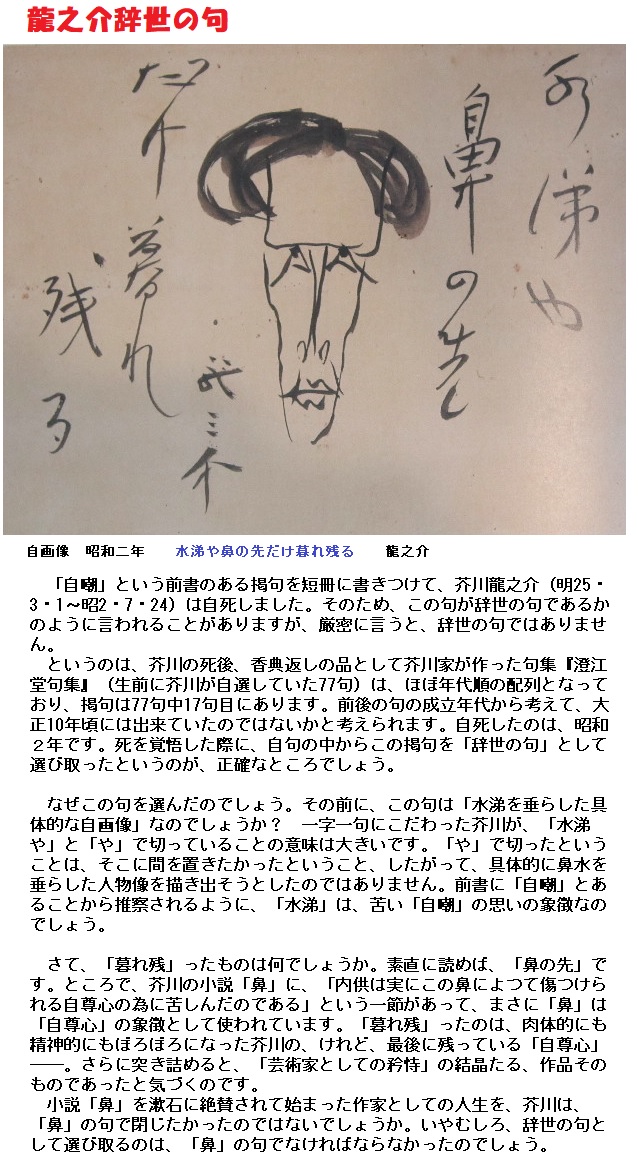 龍之介辞世の句
水涕や
鼻の先
だけ
暮れ
残る
龍之介
自画像　昭和二年　水涕や鼻の先だけ暮れ残る　龍之介
「自嘲」という前書のある掲句を短冊に書きつけて、芥川龍之介（明25・
3・1～昭2・7・24）は自死しました。そのため、この句が辞世の句であるか
のように言われることがありますが、厳密に言うと、辞世の句ではありませ
ん。
というのは、芥川の死後、香典返しの品として芥川家が作った句集『澄江
堂句集』（生前に芥川が自選していた77句）は、ほぼ年代順の配列となって
おり、掲句は77句中17句目にあります。前後の句の成立年代から考えて、大
正10年頃には出来ていたのではないかと考えられます。自死したのは、昭和
２年です。死を覚悟した際に、自句の中からこの掲句を「辞世の句」として
選び取ったというのが、正確なところでしょう。
なぜこの句を選んだのでしょう。その前に、この句は「水涕を垂らした具
体的な自画像」なのでしょうか？　一字一句にこだわった芥川が、「水涕
や」と「や」で切っていることの意味は大きいです。「や」で切ったという
ことは、そこに間を置きたかったということ、したがって、具体的に鼻水を
垂らした人物像を描き出そうとしたのではありません。前書に「自嘲」とあ
ることから推察されるように、「水涕」は、苦い「自嘲」の思いの象徴なの
でしょう。
さて、「暮れ残」ったものは何でしょうか。素直に読めば、「鼻の先」で
す。ところで、芥川の小説「鼻」に、「内供は実にこの鼻によつて傷つけら
れる自尊心の為に苦しんだのである」という一節があって、まさに「鼻」は
「自尊心」の象徴として使われています。「暮れ残」ったのは、肉体的にも
精神的にもぼろぼろになった芥川の、けれど、最後に残っている「自尊心」
――。さらに突き詰めると、「芸術家としての矜恃」の結晶たる、作品その
ものであったと気づくのです。
小説「鼻」を漱石に絶賛されて始まった作家としての人生を、芥川は、
「鼻」の句で閉じたかったのではないでしょうか。いやむしろ、辞世の句と
して選び取るのは、「鼻」の句でなければならなかったのでしょう。